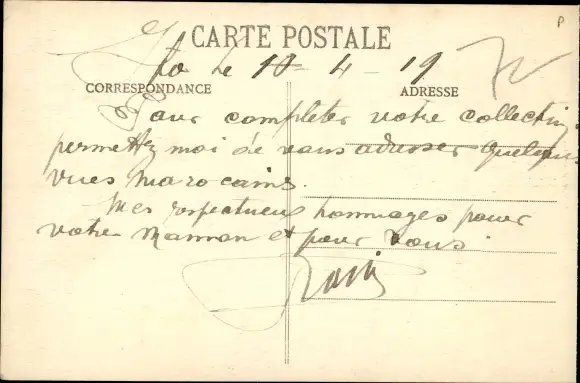 P
CARTE POSTALE
le 10-4-19
CORRESPONDANCE ADRESSE
Pour completer votre collection
permettez moi de vous adresser quelques
vues marocaines.
Mes respectueux hommages pour
votre Maman et pour vous.